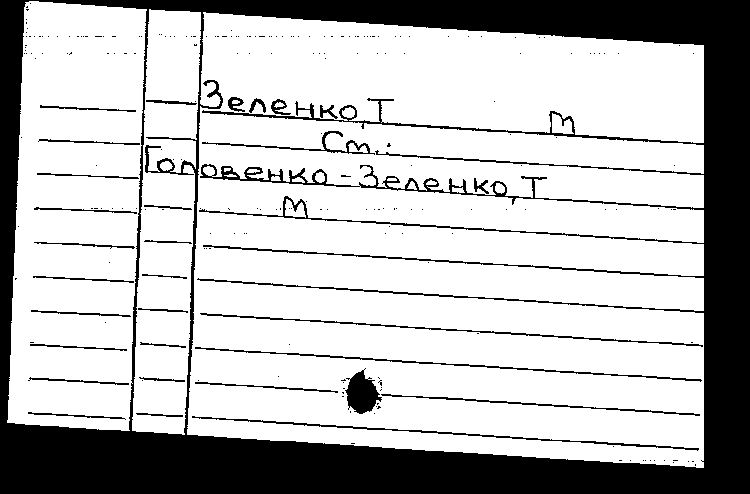 Зеленко,Т m
Cm.:
Головенко-Зеленко,Т
m